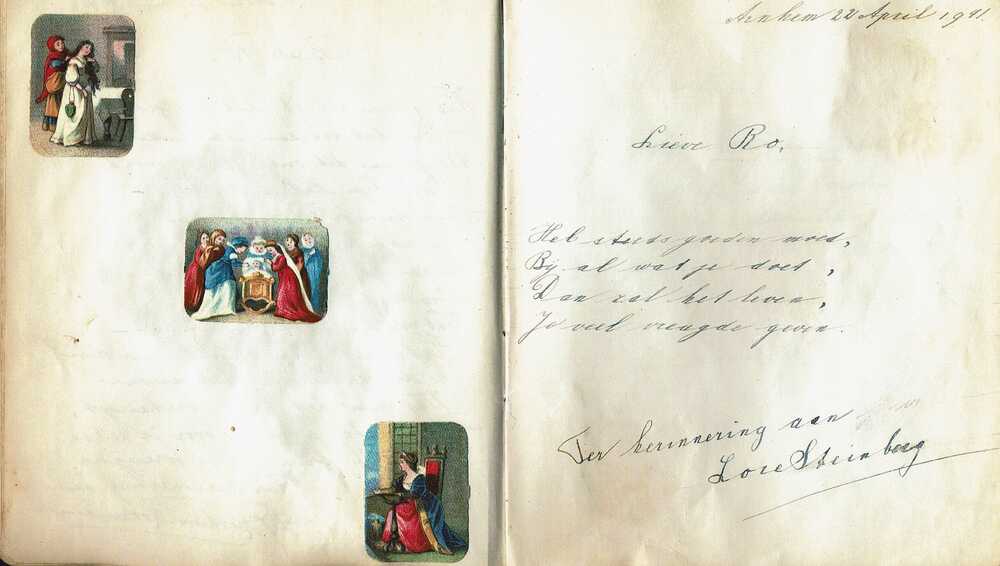 Arnhem 22 April 1941.
Lieve Ro,
Heb steeds goeden moed,
Bij al wat je doet,
Dan zal het leven,
Je veel vreugde geven.
Ter herinnering aan
Lore Steinberg